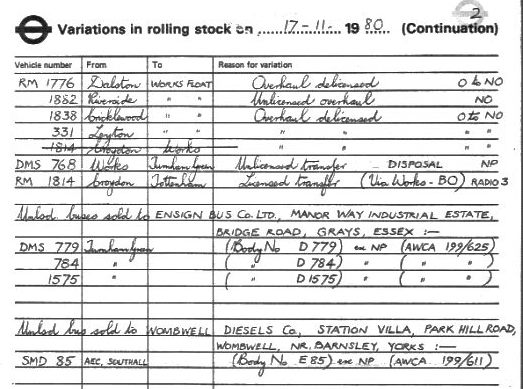 2
Variations in rolling stock on 17-11- 1980 (Continuation)
Vehicle number From To Reason for variation
RM 1776 Dalston WORKS FLOAT Overhaul delicensed O to NO
1882 Riverside " " Unlicensed overhaul NO
1838 Cricklewood " " Overhaul delicensed O to NO
331 Leyton " " " " " "
1814 Croydon Works " " " "
DMS 768 Works Turnham Green Unlicensed transfer DISPOSAL NP
RM 1814 Croydon Tottenham Licensed transfer (Via Works - BO) RADIO 3
Unlsd buses sold to ENSIGN BUS Co. LTD., MANOR WAY INDUSTRIAL ESTATE,
BRIDGE ROAD, GRAYS, ESSEX :—
DMS 779 Turnham Green (Body No D 779) ex NP (AWCA 199/625)
784 " ( " D 784) " ( " )
1575 " ( " D 1575) " ( " )
Unlsd bus sold to WOMBWELL DIESELS Co., STATION VILLA, PARK HILL ROAD,
WOMBWELL, NR. BARNSLEY, YORKS :—
SMD 85 AEC, SOUTHALL (Body No E 85) ex NP (AWCA 199/611)